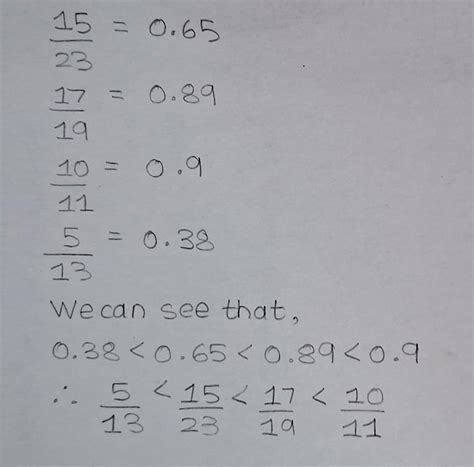 15/23 = 0.65
17/19 = 0.89
10/11 = 0.9
5/13 = 0.38
We can see that,
0.38 < 0.65 < 0.89 < 0.9
∴ 5/13 < 15/23 < 17/19 < 10/11